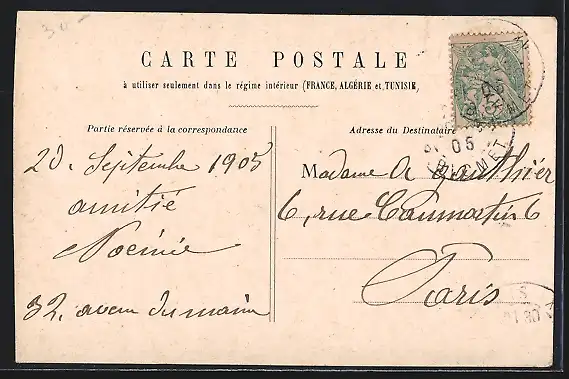 CARTE POSTALE
à utiliser seulement dans le régime intérieur (FRANCE, ALGÉRIE et TUNISIE)
Partie réservée à la correspondance
20. Septembre 1905
amitié
Noémie
32. avenu du maine
Adresse du Destinataire
Madame A Gauthier
6, rue Caumartin 6
Paris
05